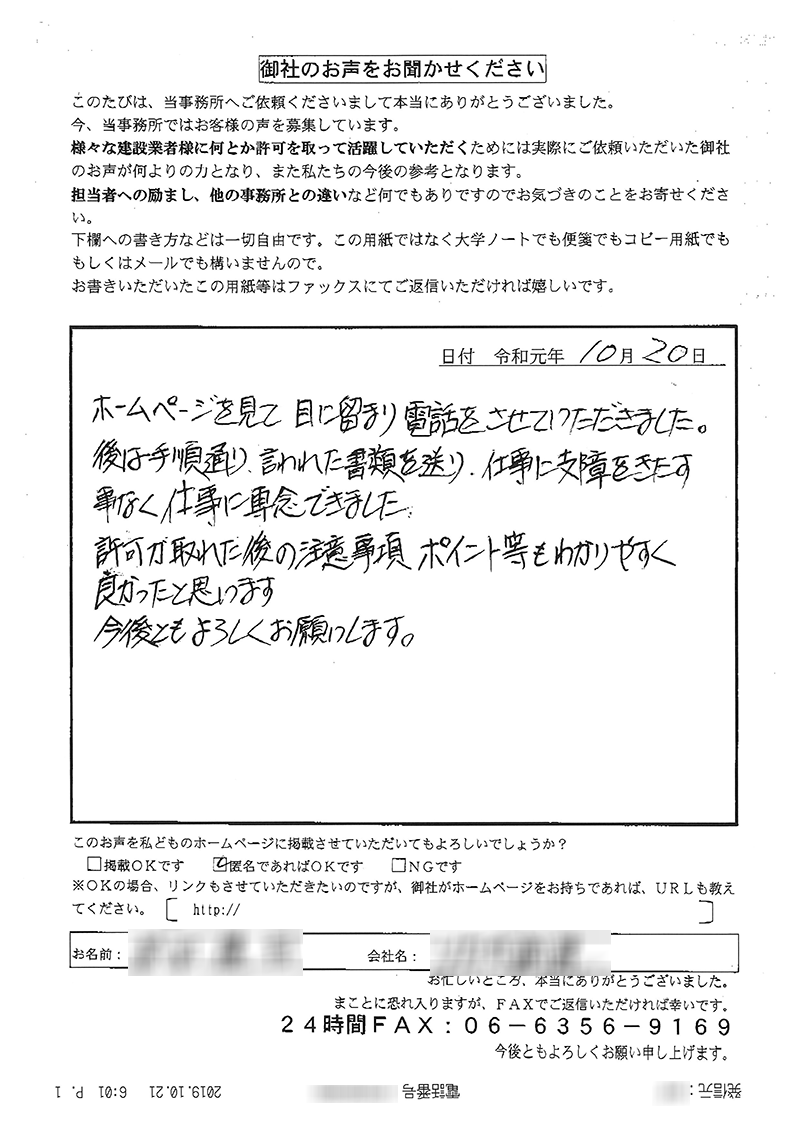 御社のお声をお聞かせください
このたびは、当事務所へご依頼くださいまして本当にありがとうございました。
今、当事務所ではお客様の声を募集しています。
様々な建設業者様に何とか許可を取って活躍していただくためには実際にご依頼いただいた御社
のお声が何よりの力となり、また私たちの今後の参考となります。
担当者への励まし、他の事務所との違いなど何でもありですのでお気づきのことをお寄せくださ
い。
下欄への書き方などは一切自由です。この用紙ではなく大学ノートでも便箋でもコピー用紙でも
もしくはメールでも構いませんので。
お書きいただいたこの用紙等はファックスにてご返信いただければ嬉しいです。
日付 令和元年 10月 20日
ホームページを見て 目に留まり 電話をさせていただきました。
後は手順通り、言われた書類を送り、仕事に支障をきたす
事なく仕事に専念できました。
許可が取れた後の注意事項 ポイント等もわかりやすく
良かったと思います
今後ともよろしくお願いします。
このお声を私どものホームページに掲載させていただいてもよろしいでしょうか？
□掲載OKです ☑匿名であればOKです □NGです
※OKの場合、リンクもさせていただきたいのですが、御社がホームページをお持ちであれば、URLも教え
てください。 [ http:// ]
お名前： 会社名：
お忙しいところ、本当にありがとうございました。
まことに恐れ入りますが、FAXでご返信いただければ幸いです。
24時間FAX：06－6356－9169
今後ともよろしくお願い申し上げます。
発信元： 電話番号 2019.10.21 6:01 P. 1